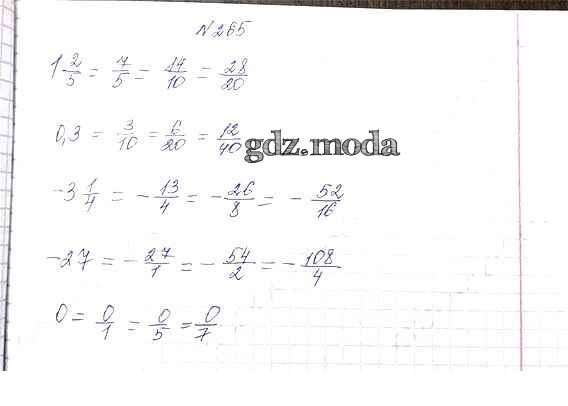 № 265
1 2/5 = 7/5 = 14/10 = 28/20
0,3 = 3/10 = 6/20 = 12/40
gdz.moda
-3 1/4 = -13/4 = -26/8 = -52/16
-27 = -27/1 = -54/2 = -108/4
0 = 0/1 = 0/5 = 0/7